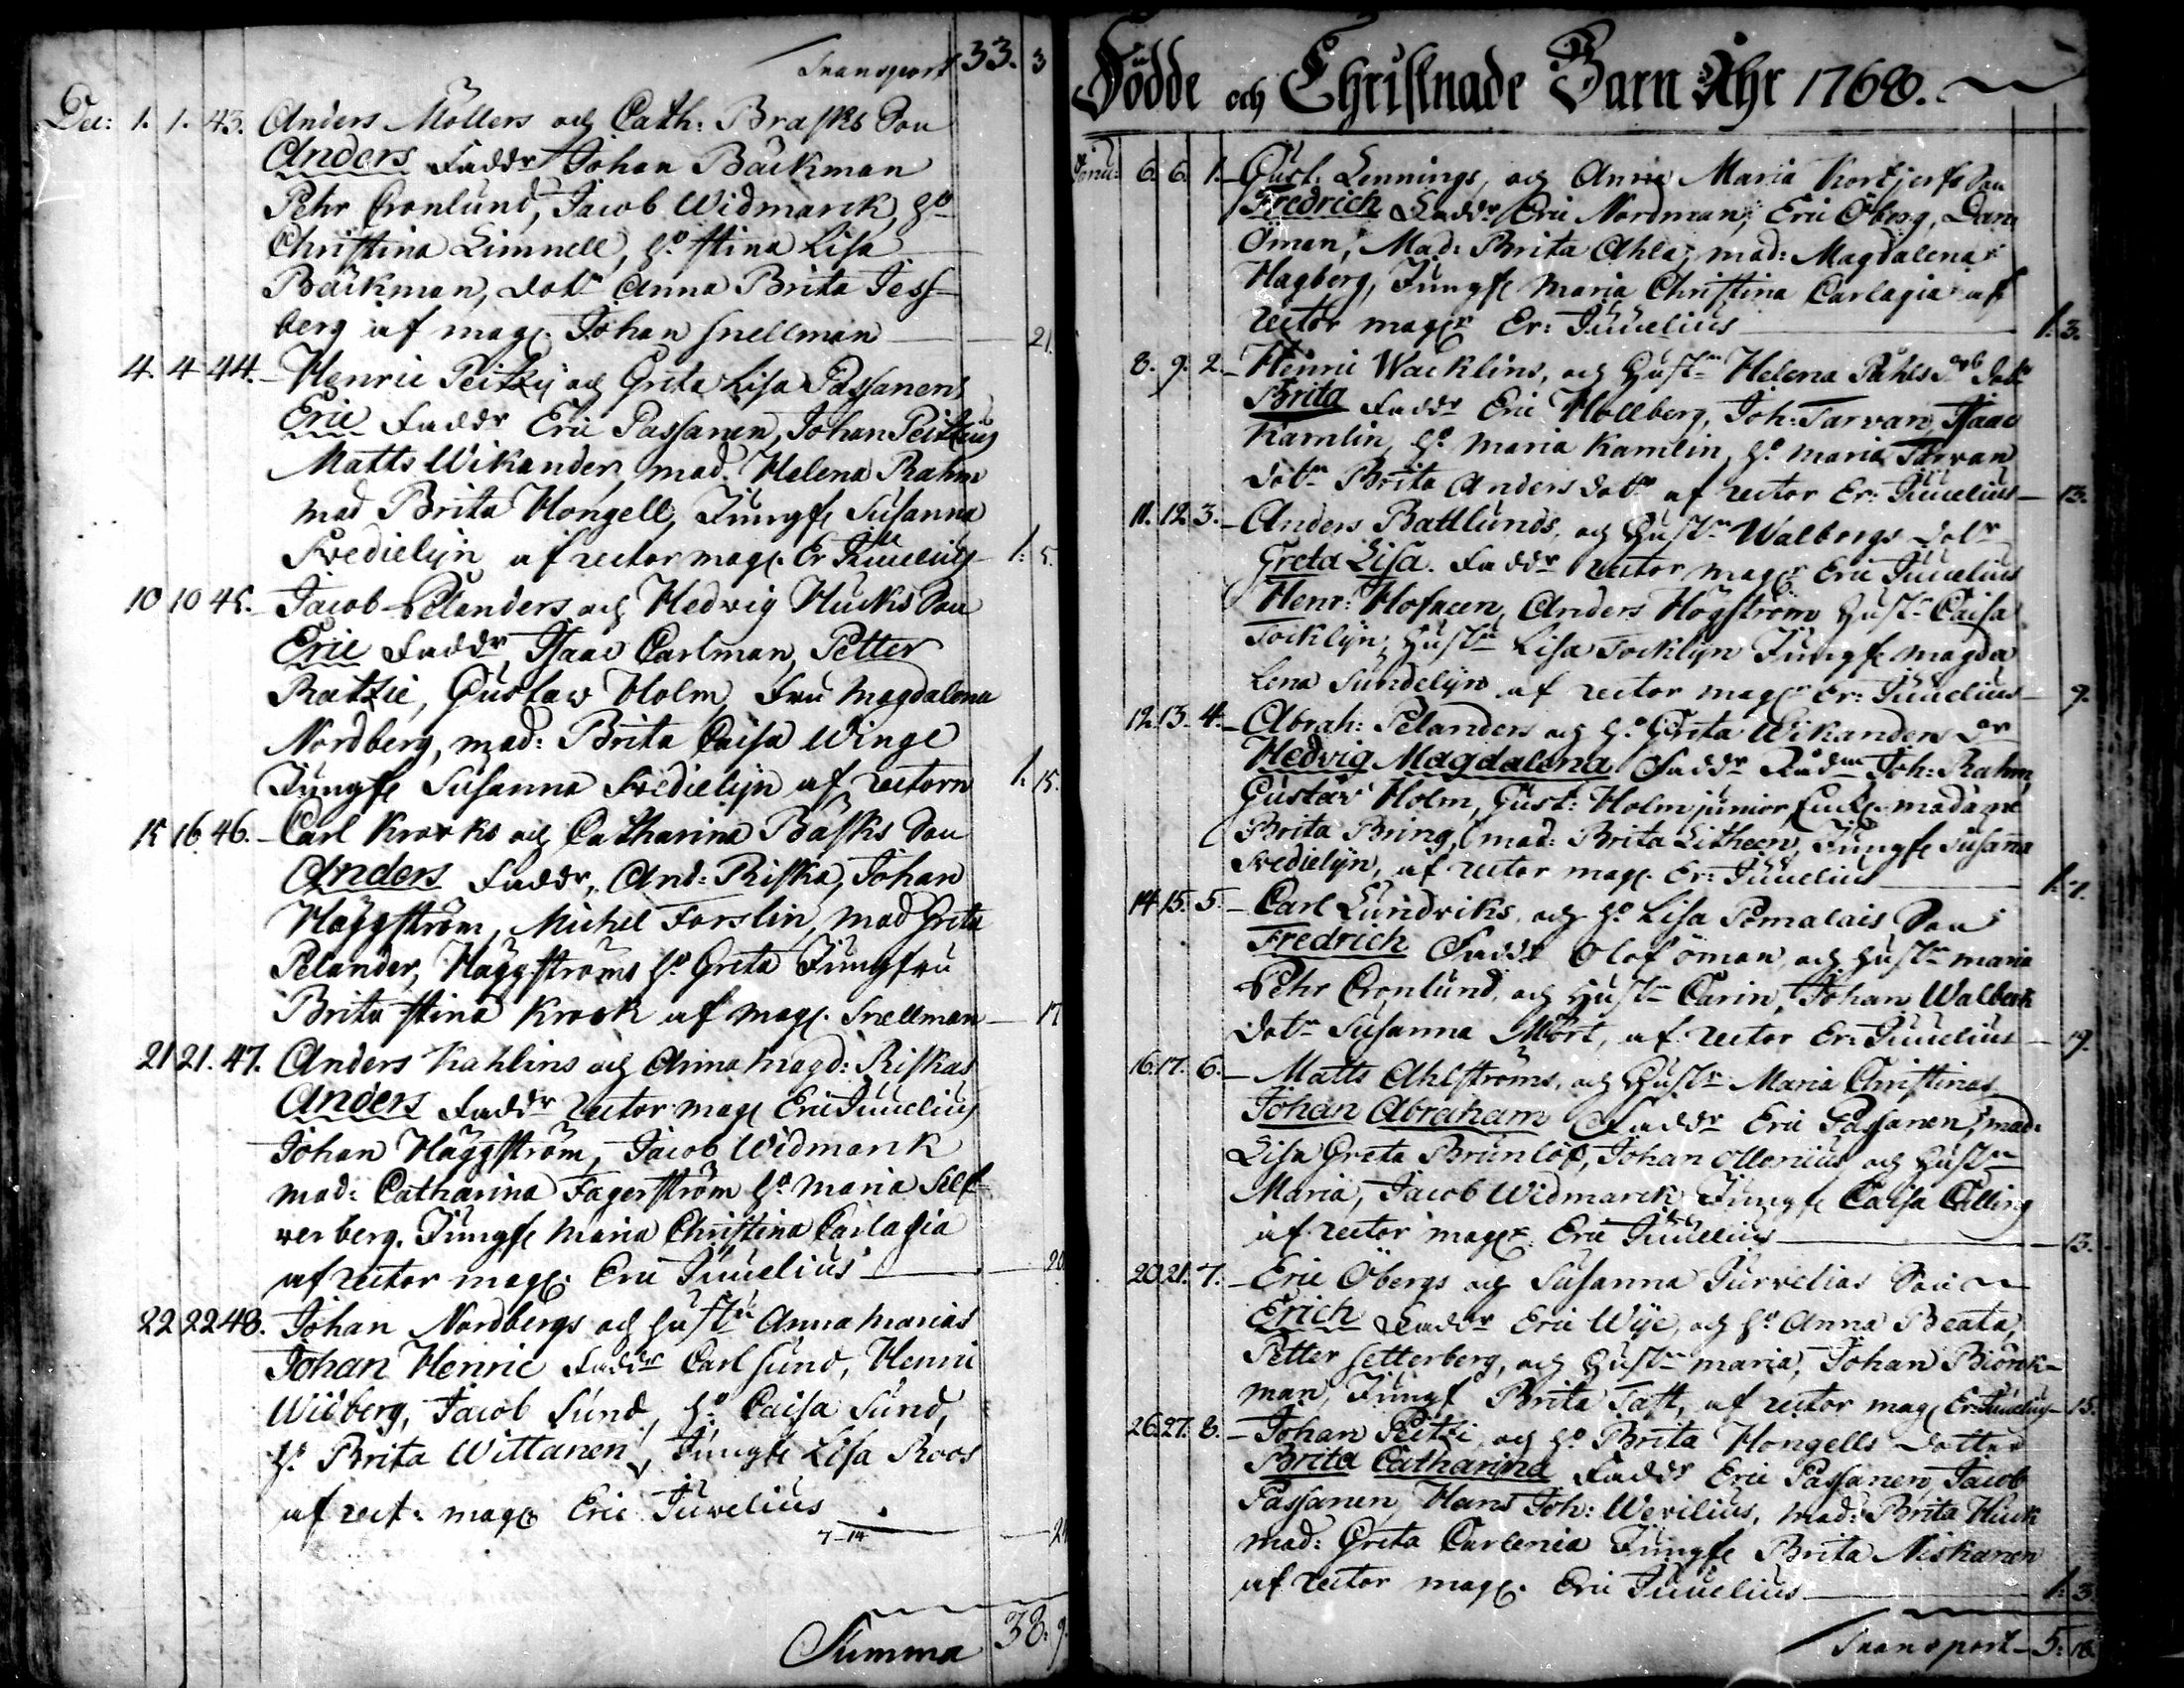 Transport 33. 3
Dec: 1. 1. 43. Anders Möllers och Cath: Brasks Son
Anders Faddr Johan Bäckman
Pehr Cronlund, Jacob Widmarck, ho
Christina Limnell, ho Stina Lisa
Bäckman, dotr Anna Brita Jess-
berg af mag. Johan Snellman 21.
4. 4 44. Henric Peitzij och Greta Lisa Passanens
Eric Faddr Eric Passanen, Johan Peitzius
Matts Wikander, mad. Helena Rahm
mad Brita Hongell, Jungfr Susanna
Svedielijn af rector mag. Er Juuelius 1: 5.
10 10 45. Jacob Pelanders och Hedvig Hucks Son
Eric Faddr Isaac Carlman, Petter
Ratzie, Gustaw Holm, Fru Magdalena
Nordberg, mad: Brita Caisa Winge
Jungfr Susanna Svedielijn af rectorn 1. 15.
15 16 46. Carl Krooks och Catharina Bäsks Son
Anders Faddr, And: Riska, Johan
Häggström, Michel Forslin, mad Greta
Pelander, Häggströms ho Greta Jungfru
Brita Stina Krook af mag. Snellman 17
21 21. 47. Anders Kahlins och Anna Magd: Riskas
Anders Faddr rector mag Eric Juuelius
Johan Häggström, Jacob Widmark
mad: Catharina Fagerström ho Maria Silf-
werberg. Jungfr Maria Christina Carlagia
af rector mag. Eric Juuelius 20
22 22 48. Johan Nordbergs och hustr Anna Marias
Johan Henric Faddr Carl Sund, Henric
Widberg, Jacob Sund, ho Caisa Sund,
ho Brita Wittanen, Jungfr Lisa Roos
af rect: mag Eric Juvelius
7-14 21
Summa 38: 9.
Födde och Christnade Barn Åhr 1768.
Janu: 6. 6. 1. Gust: Lennings, och Anna Maria Kortjerfs Son
Fredrich Faddr Eric Nordman, Eric Öberg, Dan
Öman, Mad: Brita Ahla, mad: Magdalena
Hagberg, Jungfr Maria Christina Carlagia af
rector magr Er: Juuelius 1: 3.
8. 9. 2. Henric Wacklins, och Hustr Helena Påhls dotr dotr
Brita Faddr Eric Hollberg, Joh: Tarvan, Isaac
Kamlin, ho Maria Kamlin, ho Maria Tarvan
dotr Brita Anders dotr af rector Er: Juuelius 13.
11. 12 3. Anders Battlunds, och Hustr Walbergs dotr
Greta Lisa. Faddr rector magr Eric Juuelius
Henr: Hofneen, Anders Högström Hustr Caisa
Tocklijn, Hustr Lisa Tocklijn Jungfr Magda
Lena Sundelijn af rector magr Er: Juuelius 9.
12. 13. 4. Abrah: Pelanders och ho Greta Wikanders dr
Hedvig Magdalena Faddr Rådm Joh: Rahm,
Gustav Holm, Gust: Holm junior, Enck. madame
Brita Bring, mad: Brita Litheen, Jungfr Susanna
Svedielijn, af rector mag. Er: Juuelius 1: 7.
14. 15. 5. Carl Lundriks, och ho Lisa Pomalais Son
Fredrich Faddr Olof Öman, och hustr Maria
Pehr Cronlund, och Hustr Carin, Johan Walbeck
dotr Susanna Mört, af rector Er: Juuelius 19.
16. 17. 6. Matts Ahlströms, och Hustr Maria Christinas
Johan Abraham Faddr Eric Passanen, mad:
Lisa Greta Brunlöf, Johan Ollonius och Hustr
Maria, Jacob Widmarck Jungfr Caisa Calling
af rector magr. Eric Juuelius 13.
20. 21. 7. Eric Öbergs och Susanna Jurvelias Son
Erich Faddr Eric Wije, och ho Anna Beata,
Petter Setterberg, och Hustr Maria, Johan Biörck-
man, Jungf Brita Tast, af rector mag Er: Juuelius 15.
26. 27. 8. Johan Peitzi, och ho Brita Hongells dotter
Brita Catharina Faddr Eric Passanen, Jacob
Passanen, Hans Joh: Werilius, mad: Brita Huck
mad: Greta Carlenia Jungfr Brita Niskanen
af rector mag. Eric Juuelius 1: 3
Transport 5: 18.